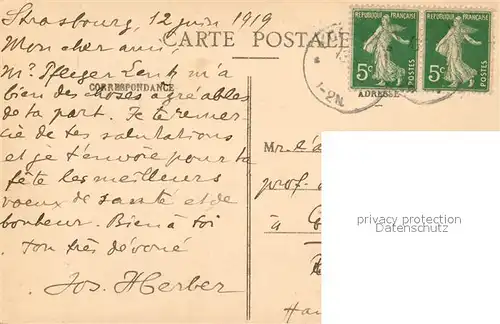 Strasbourg, 12 juin 1919
Mon cher ami,
CARTE POSTALE
Mr Pfleger Lenk m'a
bien des choses agréables
CORRESPONDANCE
de ta part. Je te remer-
cie de tes salutations
et je t'envoie pour ta
fête les meilleurs
voeux de santé et de
bonheur. Bien à toi
ton très dévoué
Jos. Herber
REPUBLIQUE FRANÇAISE
5c
POSTES
REPUBLIQUE FRANÇAISE
5c
POSTES
1-2N.
ADRESSE
Mr. l'a
prof.
à
privacy protection
VERDECKT / COVERED